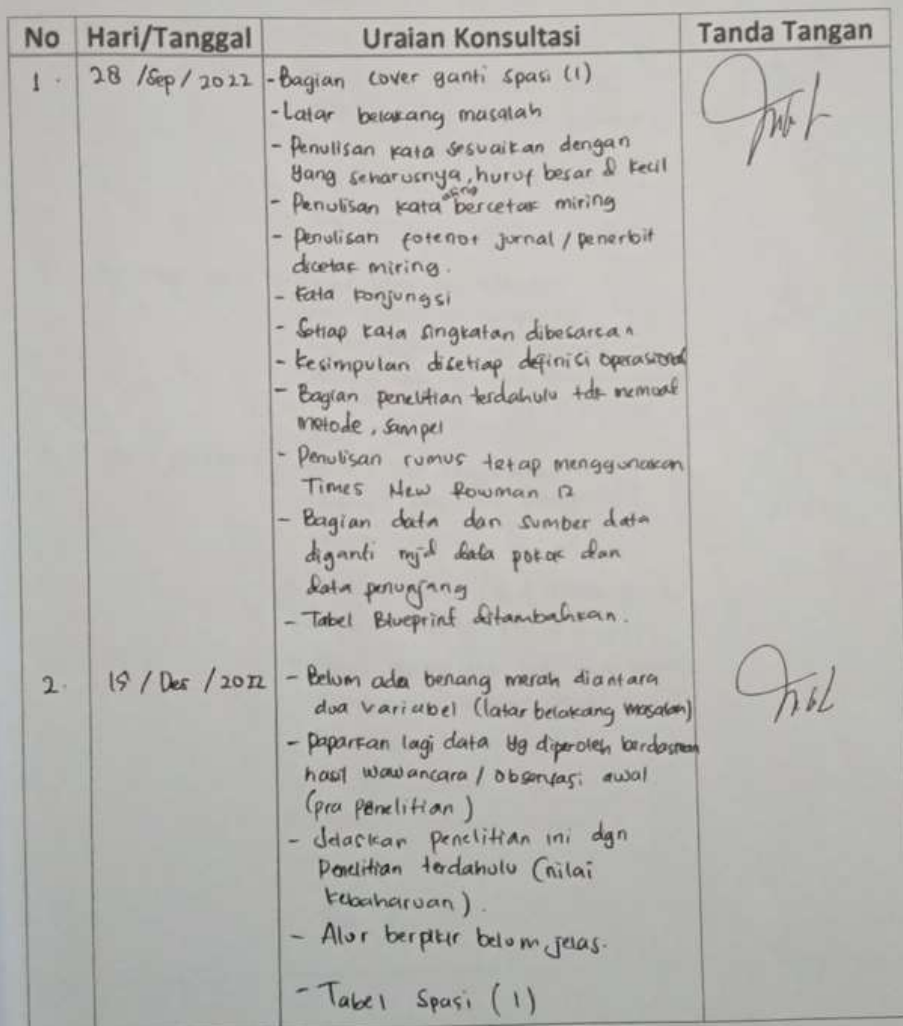 No Hari/Tanggal Uraian Konsultasi Tanda Tangan
1. 28 /Sep / 2022 - Bagian cover ganti spasi (1)
- Latar belakang masalah
- Penulisan kata sesuaikan dengan
yang seharusnya, huruf besar & kecil
- Penulisan kata asing bercetak miring
- Penulisan fotenot jurnal / penerbit
dicetak miring.
- Kata konjungsi
- Setiap kata singkatan dibesarkan
- Kesimpulan disetiap definisi operasional
- Bagian penelitian terdahulu tdk memuat
metode, sampel
- Penulisan rumus tetap menggunakan
Times New Rowman 12
- Bagian data dan sumber data
diganti mjd data pokok dan
data penunjang
- Tabel Blueprint ditambahkan.
2. / Des / 2022 - Belum ada benang merah diantara
dua variabel (latar belakang masalah)
- Paparkan lagi data yg diperoleh berdasarkan
hasil wawancara / observasi awal
(pra penelitian)
- Jelaskan penelitian ini dgn
Penelitian terdahulu (nilai
kebaharuan).
- Alur berpikir belum jelas.
- Tabel Spasi (1)